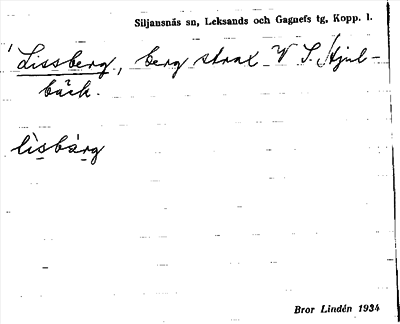 Siljansnäs sn, Leksands och Gagnefs tg, Kopp. l.
Lissberg, berg strax V S. Hjul-
bäck.
lìsbàrg
Bror Lindén 1934